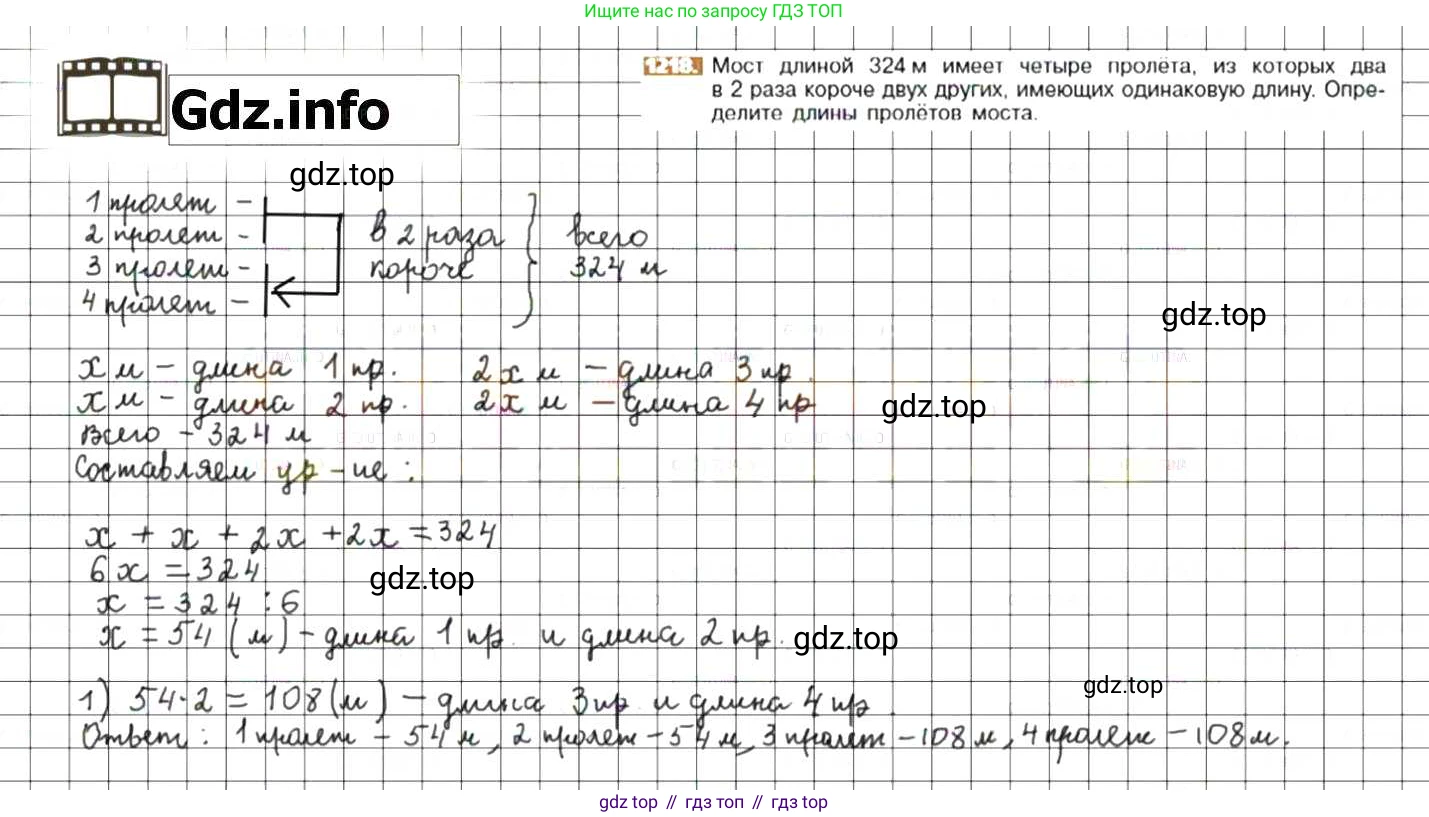 Ищите нас по запросу ГДЗ ТОП
Gdz.info
1218. Мост длиной 324 м имеет четыре пролёта, из которых два
в 2 раза короче двух других, имеющих одинаковую длину. Опре-
делите длины пролётов моста.
gdz.top
1 пролет -
2 пролет -
3 пролет -
4 пролет -
в 2 раза
короче
всего
324 м
gdz.top
х м - длина 1 пр. 2х м - длина 3 пр.
х м - длина 2 пр. 2х м - длина 4 пр
gdz.top
Всего - 324 м
Составляем ур-ие:
х + х + 2х + 2х = 324
6х = 324
gdz.top
х = 324 : 6
х = 54 (м) - длина 1 пр. и длина 2 пр.
gdz.top
gdz.top
1) 54·2 = 108 (м) - длина 3 пр и длина 4 пр
Ответ: 1 пролет - 54 м, 2 пролет - 54 м, 3 пролет - 108 м, 4 пролет - 108 м.
gdz top // гдз топ // gdz top